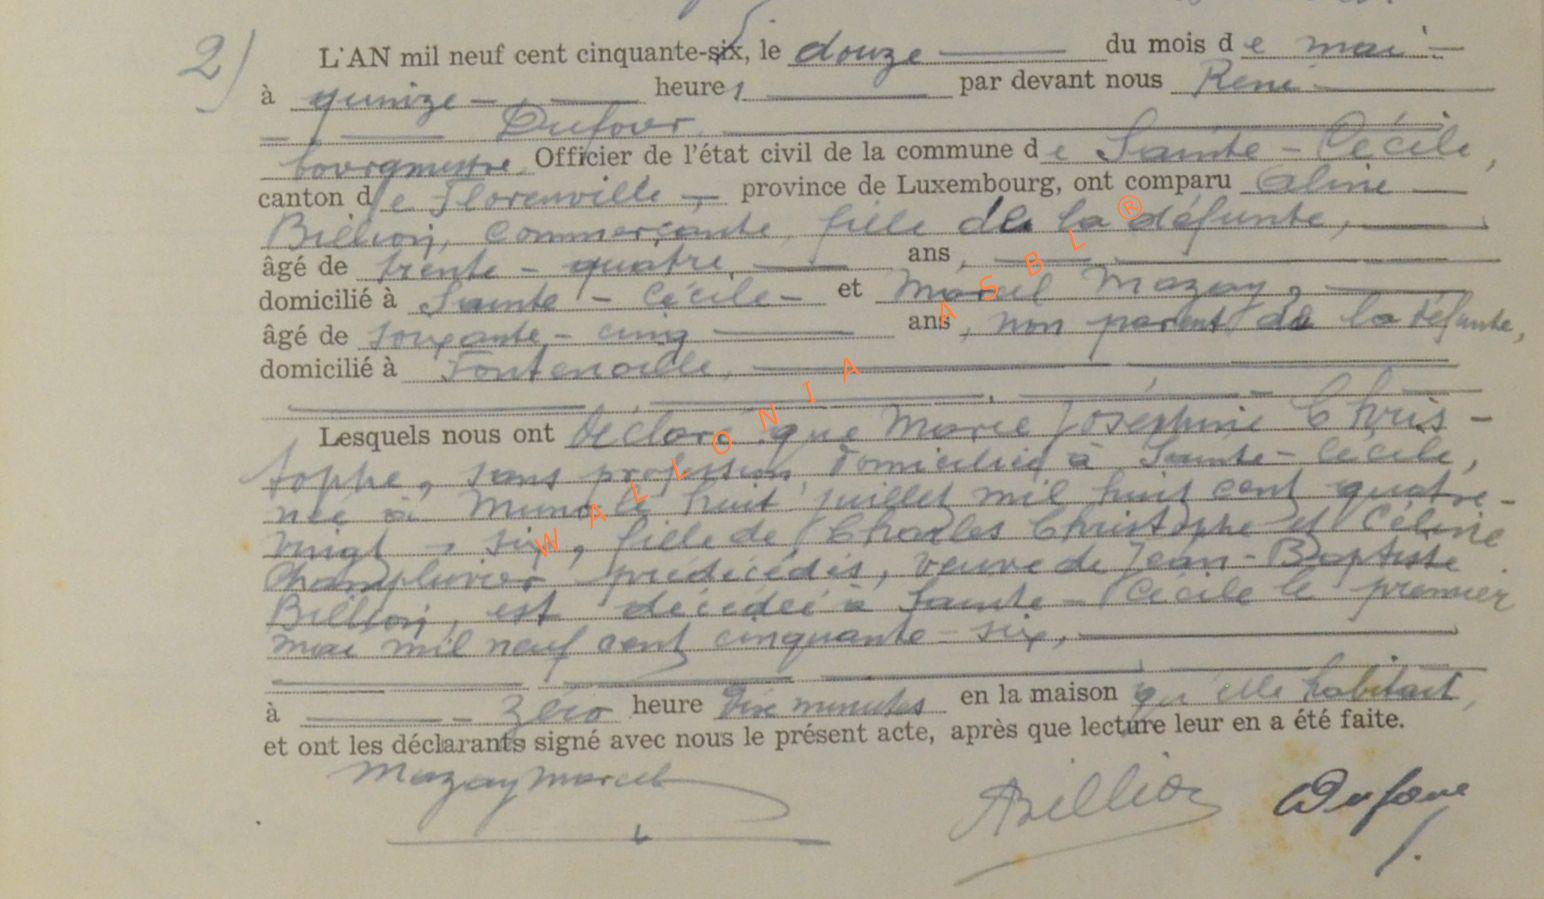 2)
L'AN mil neuf cent cinquante-six, le douze du mois de mai
à quinze heures par devant nous René
Dufour
bourgmestre Officier de l'état civil de la commune de Sainte-Cécile,
canton de Florenville province de Luxembourg, ont comparu Céline
Billion, commerçante, fille de la défunte,
âgé de trente-quatre ans,
domicilié à Sainte-Cécile et Marcel Mazay,
âgé de soixante-cinq ans, non parent de la défunte,
domicilié à Fontenoille,
Lesquels nous ont déclaré que Marie Joséphine Chris-
tophe, sans profession, domiciliée à Sainte-Cécile,
née à Muno le huit juillet mil huit cent quatre-
vingt-six, fille de Charles Christophe et Céline
Champluvier prédécédés, veuve de Jean-Baptiste
Billion, est décédée à Sainte-Cécile le premier
mai mil neuf cent cinquante-six,
à zéro heure dix minutes en la maison qu'elle habitait,
et ont les déclarants signé avec nous le présent acte, après que lecture leur en a été faite.
Mazay Marcel ABillion Dufour
WALLONIA ASBL ®